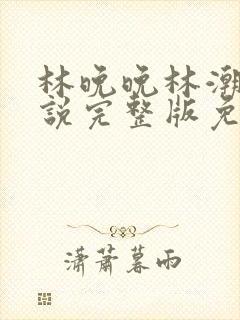 林晚晚林潮
說完整版免
瀟蕭暮雨